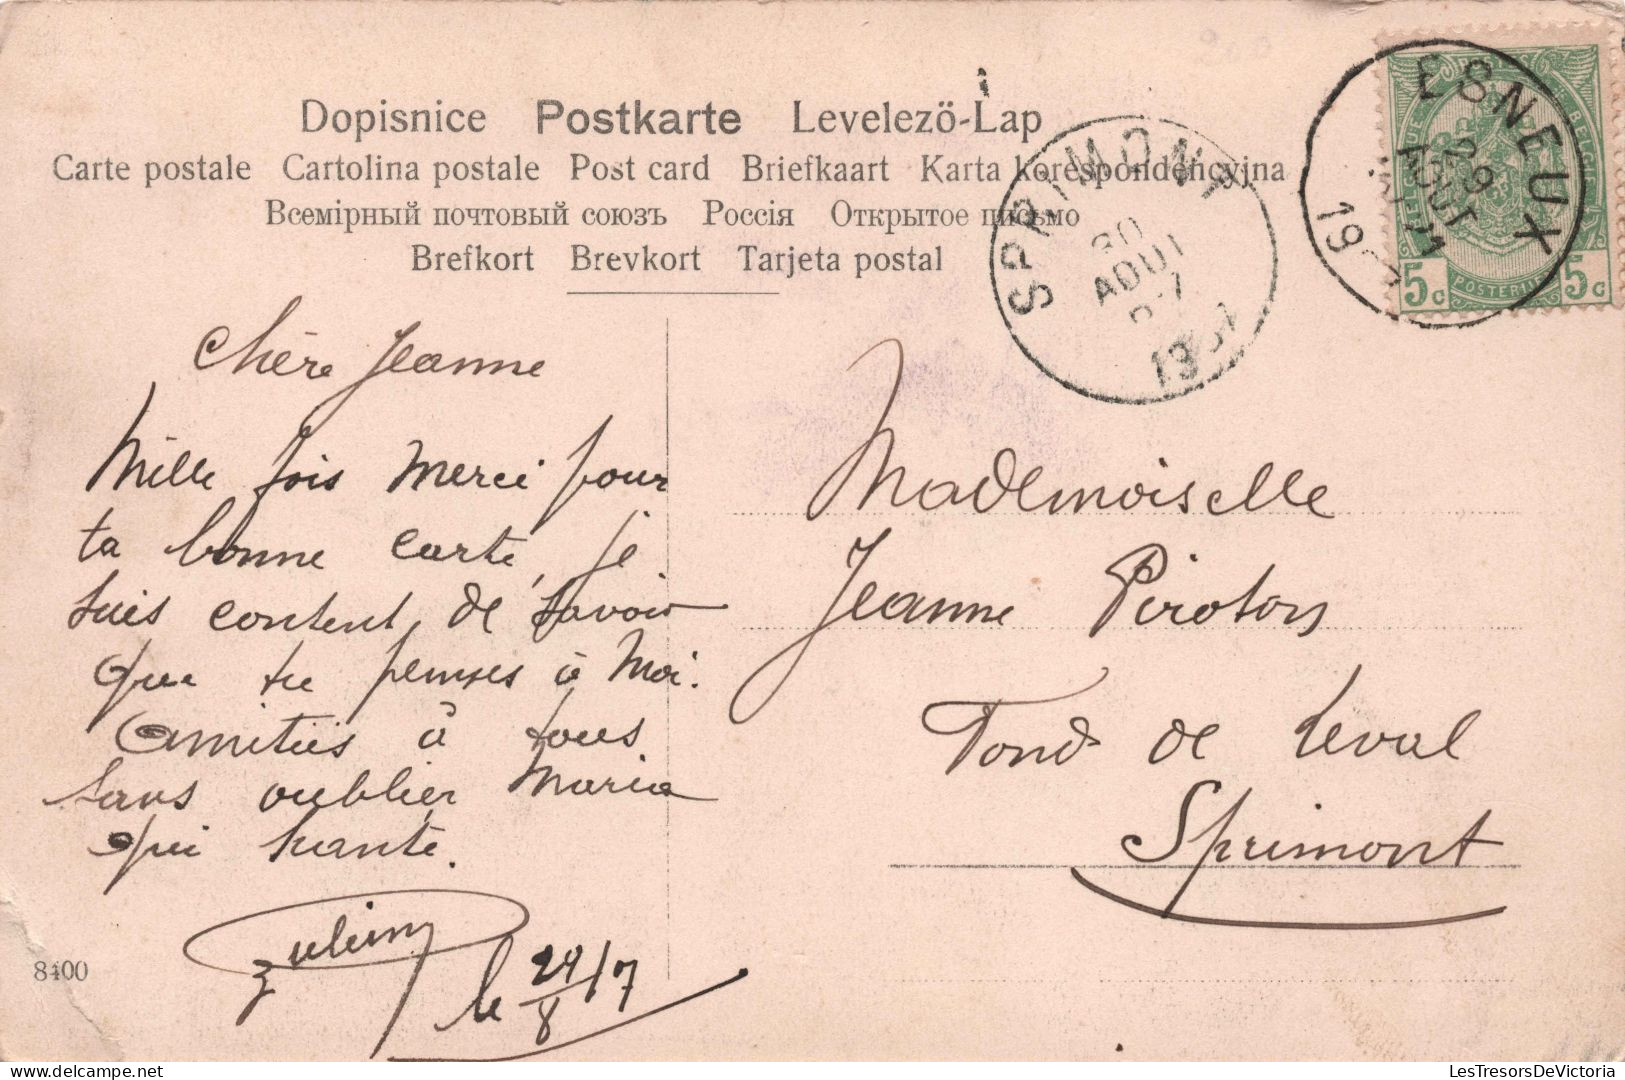 Dopisnice Postkarte Levelezö-Lap
Carte postale Cartolina postale Post card Briefkaart Karta korespondencyjna
Всемірный почтовый союзъ Россія Открытое письмо
Brefkort Brevkort Tarjeta postal
ESNEUX
29
AOUT
19
5c POSTERIJEN 5c
SPRIMONT
30
AOUT
Chère Jeanne
Mille fois merci pour
ta bonne carte, je
suis content de savoir
que tu penses à moi.
Amitiés à tous
sans oublier Maria
qui
Julien
le 29/8/7
Mademoiselle
Jeanne Piroton
Fond de Leval
Sprimont
8400
LesTresorsDeVictoria